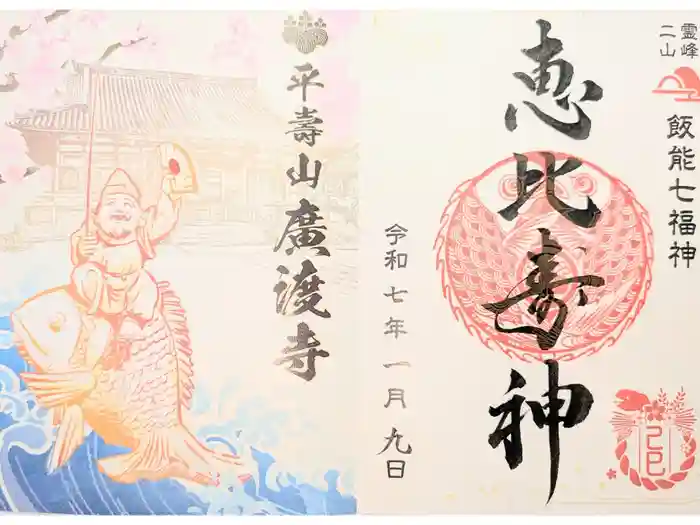 霊峰
二山
飯能七福神
恵比寿神
令和七年一月九日
乙巳
平壽山廣渡寺